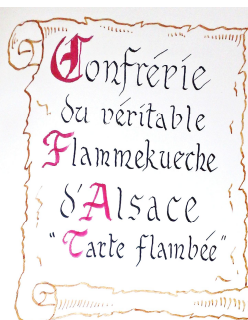 Confrérie
du véritable
Flammekueche
d'Alsace
"Tarte flambée"